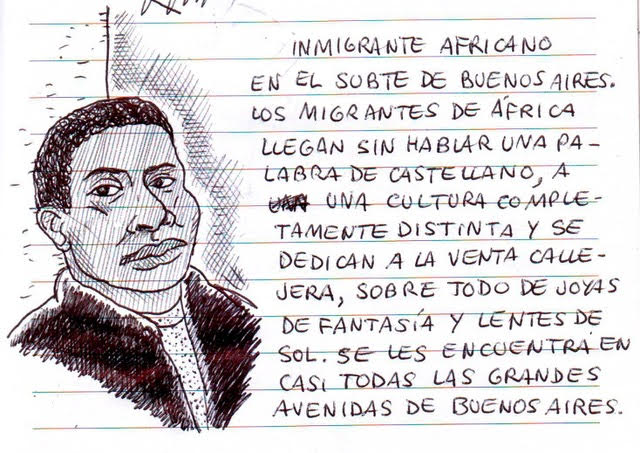 INMIGRANTE AFRICANO
EN EL SUBTE DE BUENOS AIRES.
LOS MIGRANTES DE ÁFRICA
LLEGAN SIN HABLAR UNA PA-
LABRA DE CASTELLANO, A
UNA CULTURA COMPLE-
TAMENTE DISTINTA Y SE
DEDICAN A LA VENTA CALLE-
JERA, SOBRE TODO DE JOYAS
DE FANTASÍA Y LENTES DE
SOL. SE LES ENCUENTRA EN
CASI TODAS LAS GRANDES
AVENIDAS DE BUENOS AIRES.